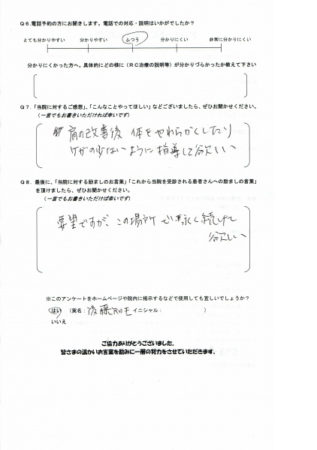 Q6.電話予約の方にお聞きします。電話での対応・説明はいかがでしたか？
とても分かりやすい 分かりやすい ふつう 分かりにくい 非常に分かりにくい
分かりにくかった方へ、具体的にどの様に（ＲＣ治療の説明等）が分かりづらかったか教えて下さい
Q7.「当院に対するご感想」、「こんなことやってほしい」などございましたら、ぜひお聞かせください。
（一言でもお書きいただければ幸いです）
肩の改善後 体をやわらかくしたり
ケガの少ないように指導して欲しい
Q8.最後に、「当院に対する励ましのお言葉」「これから当院を受診される患者さんへの励ましの言葉」
を頂けましたら、ぜひお聞かせください。
（一言でもお書きいただければ幸いです）
要望ですが、この場所で永く続けて
欲しい
※このアンケートをホームページや院内に掲示するなどで使用しても宜しいでしょうか？
はい （実名： 後藤 イニシャル： ）
いいえ
ご協力ありがとうございました。
皆さまの温かいお言葉を励みに一層の努力をさせていただきます。